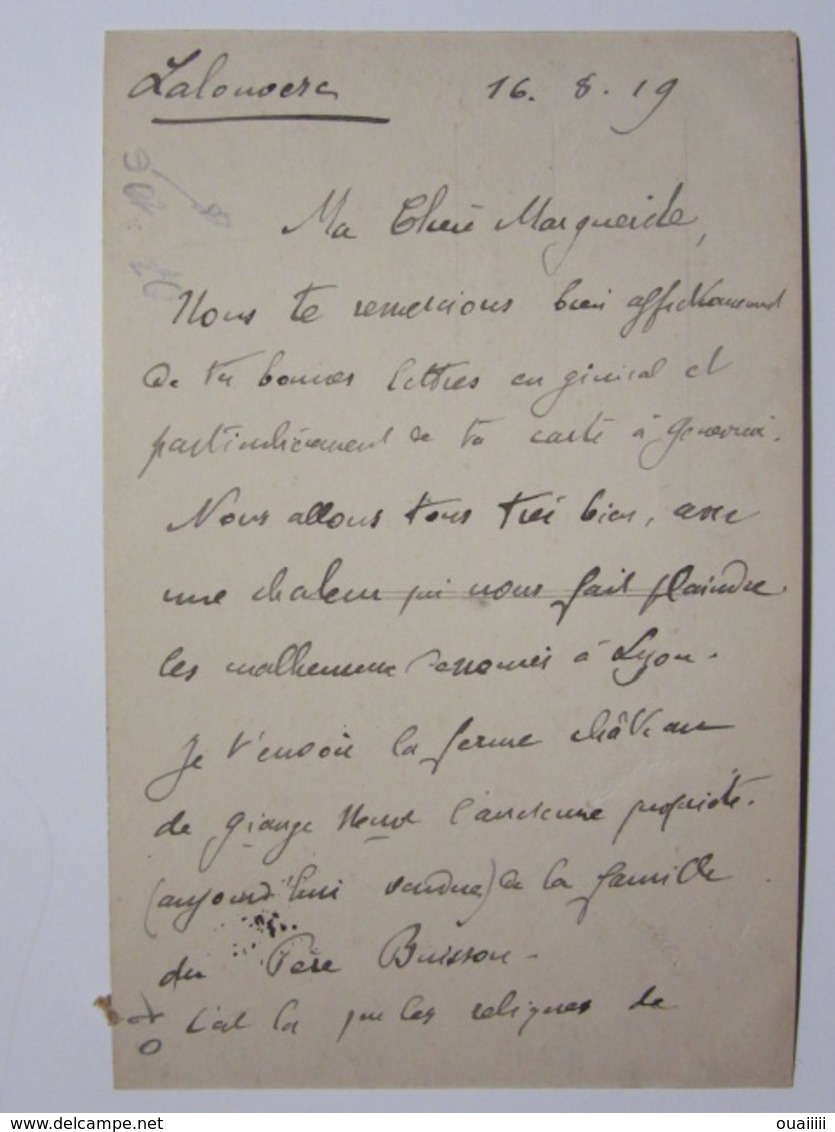 Lalouvesc 16. 8. 19
Ma Chère Marguerite,
Nous te remercions bien affectionnement
de tes bonnes lettres en général et
particulièrement de ta carte à Geneviève.
Nous allons tous très bien, avec
une chaleur qui nous fait plaindre
les malheureux à Lyon.
Je t'envoie la ferme château
de Grange Neuve l'ancienne propriété.
(aujourd'hui vendue) de la famille
du Père Buisson -
C'est là que les reliques de
ouaiiiii
www.delcampe.net